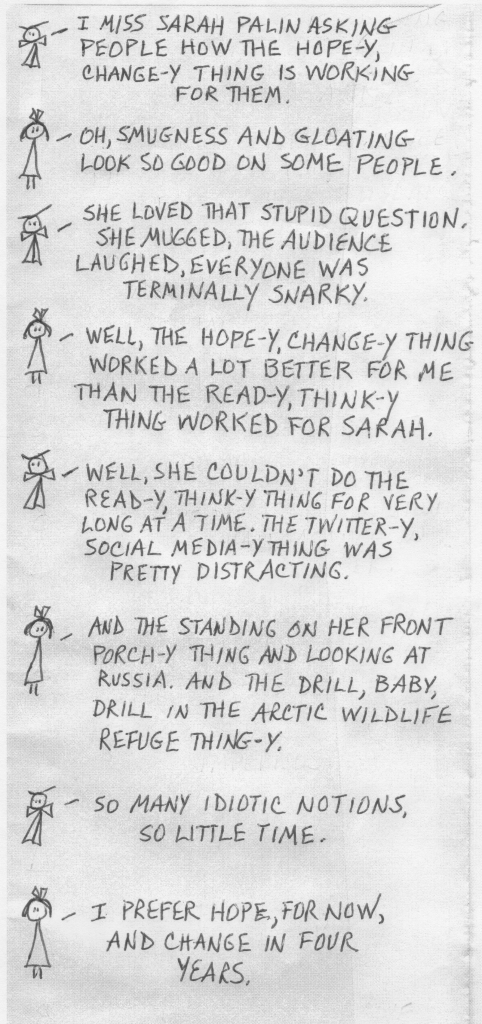 I MISS SARAH PALIN ASKING
PEOPLE HOW THE HOPE-Y,
CHANGE-Y THING IS WORKING
FOR THEM.
OH, SMUGNESS AND GLOATING
LOOK SO GOOD ON SOME PEOPLE.
SHE LOVED THAT STUPID QUESTION.
SHE MUGGED, THE AUDIENCE
LAUGHED, EVERYONE WAS
TERMINALLY SNARKY.
WELL, THE HOPE-Y, CHANGE-Y THING
WORKED A LOT BETTER FOR ME
THAN THE READ-Y, THINK-Y
THING WORKED FOR SARAH.
WELL, SHE COULDN'T DO THE
READ-Y, THINK-Y THING FOR VERY
LONG AT A TIME. THE TWITTER-Y,
SOCIAL MEDIA-Y THING WAS
PRETTY DISTRACTING.
AND THE STANDING ON HER FRONT
PORCH-Y THING AND LOOKING AT
RUSSIA. AND THE DRILL, BABY,
DRILL IN THE ARCTIC WILDLIFE
REFUGE THING-Y.
SO MANY IDIOTIC NOTIONS,
SO LITTLE TIME.
I PREFER HOPE, FOR NOW,
AND CHANGE IN FOUR
YEARS.